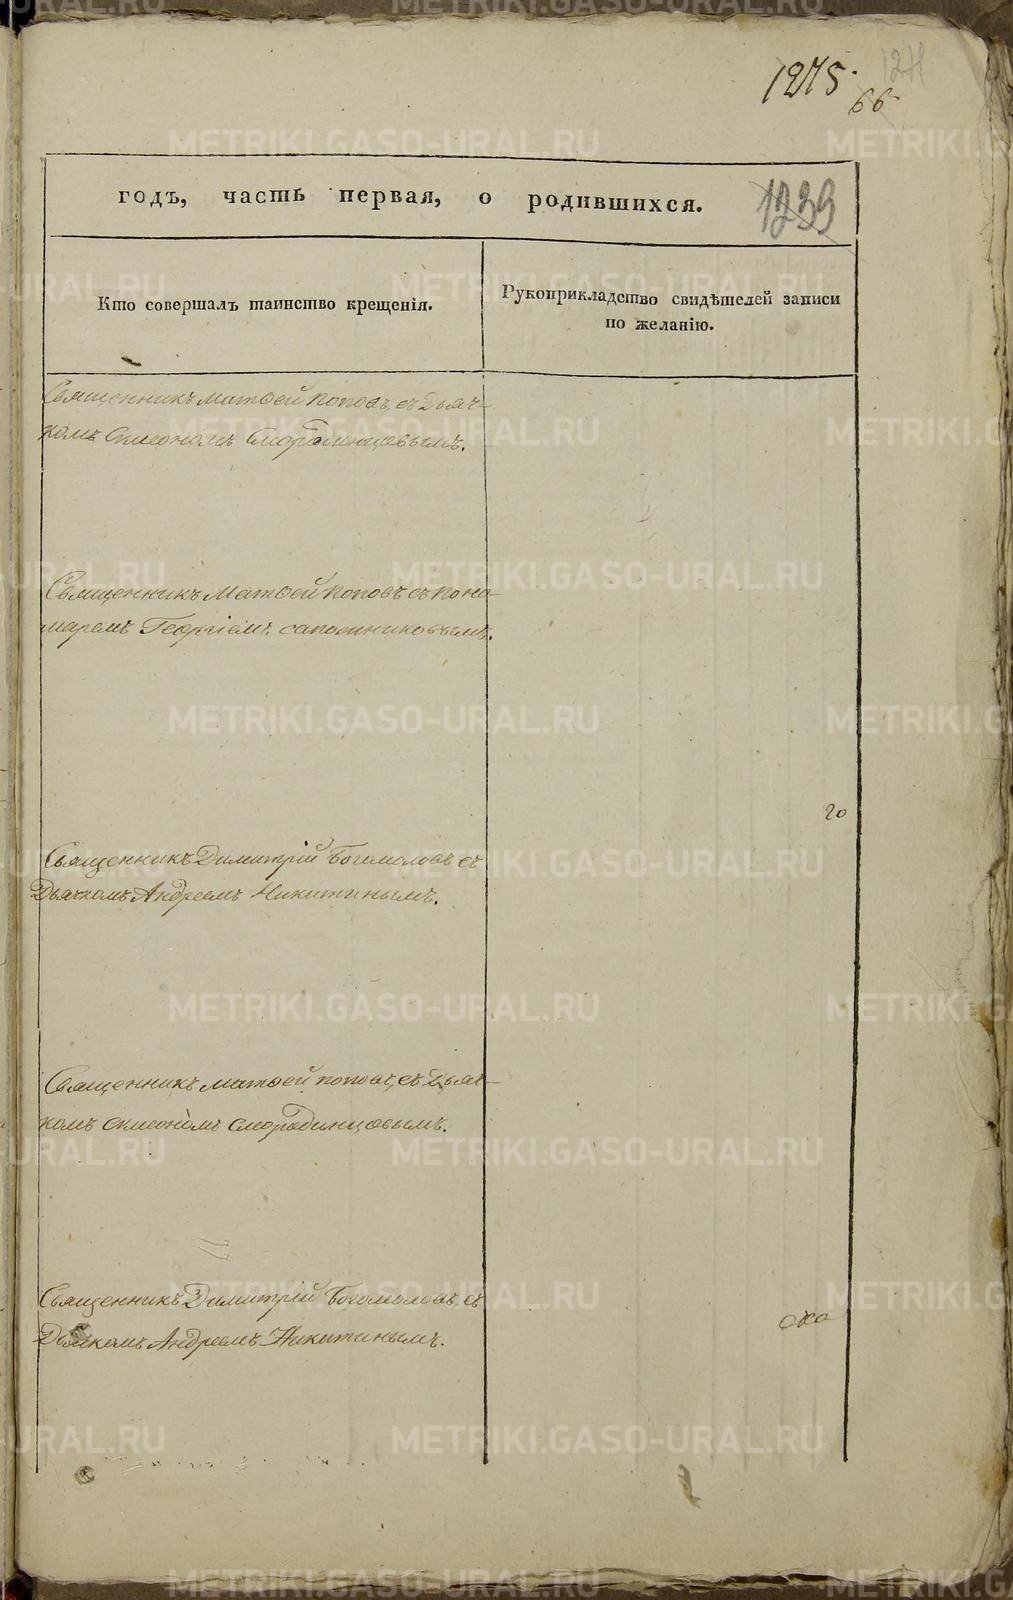 1275.
66
1239
годъ, часть первая, о родившихся.
Кто совершалъ таинство крещенія.
Рукоприкладство свидѣтелей записи
по желанію.
Священникъ Матѳей Поповъ, съ Дьяч-
комъ Симеономъ Смородинцовымъ.
Священникъ Матѳей Поповъ съ поно-
маремъ Георгіемъ Сапожниковымъ.
Священникъ Димитрій Богомоловъ съ
Дьячкомъ Андреемъ Никитинымъ.
Священникъ Матѳей Поповъ, съ Дьяч-
комъ Симеономъ Смородинцовымъ.
Священникъ Димитрій Богомоловъ, съ
Дьячкомъ Андреемъ Никитинымъ.
METRIKI.GASO-URAL.RU